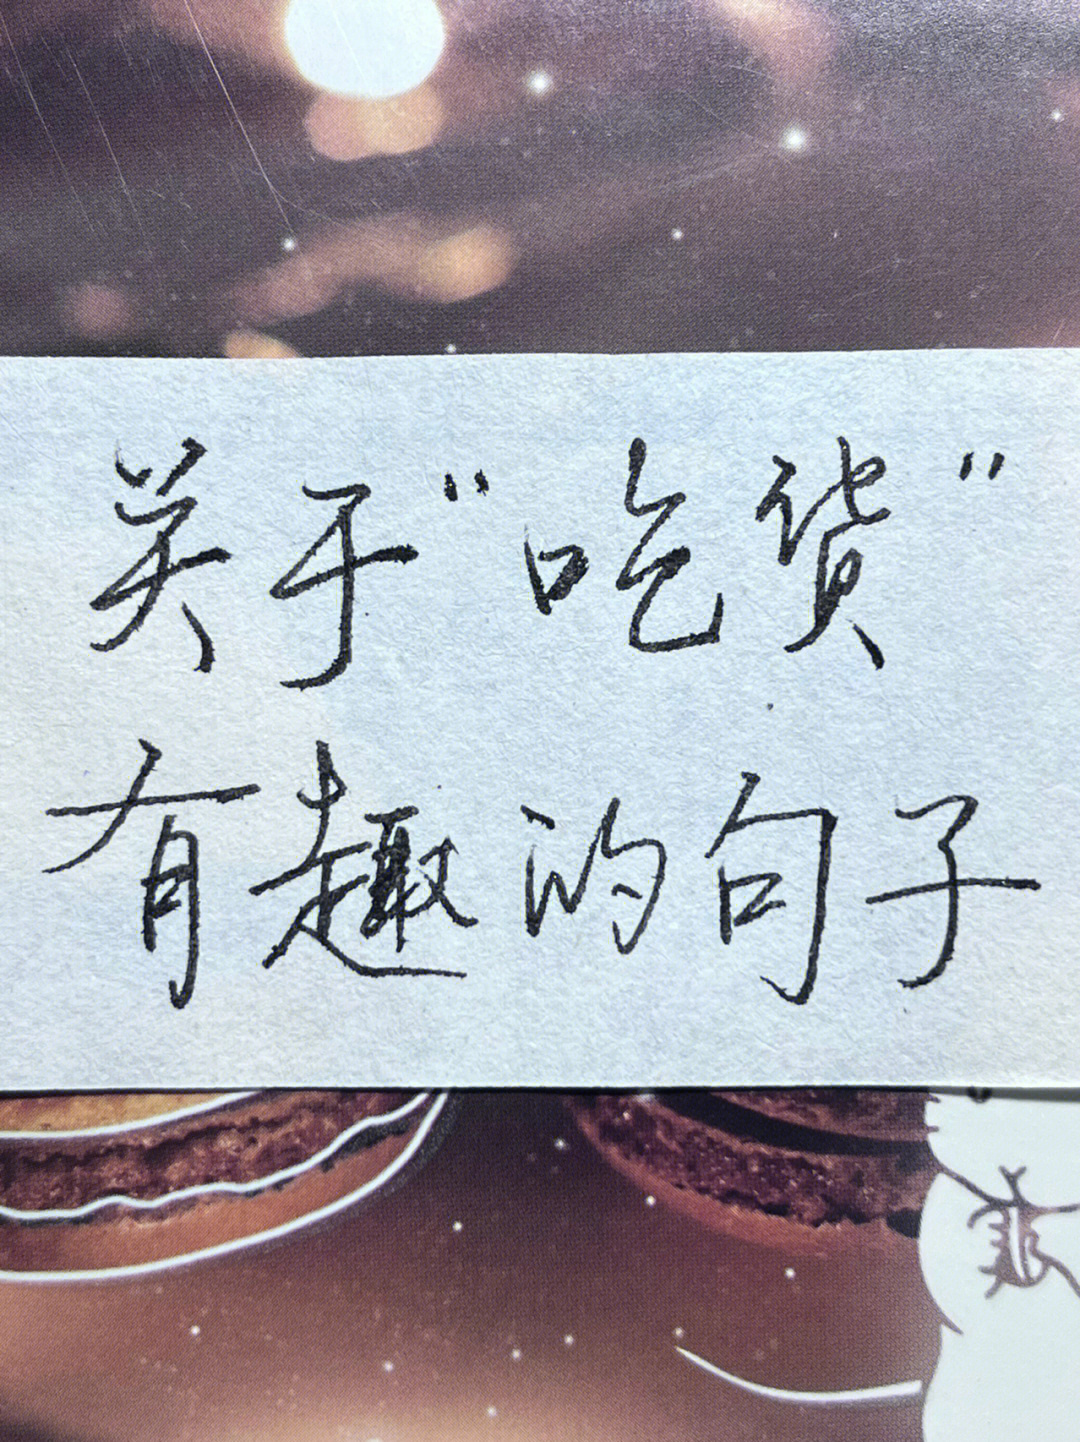 关于“吃货”
有趣的句子